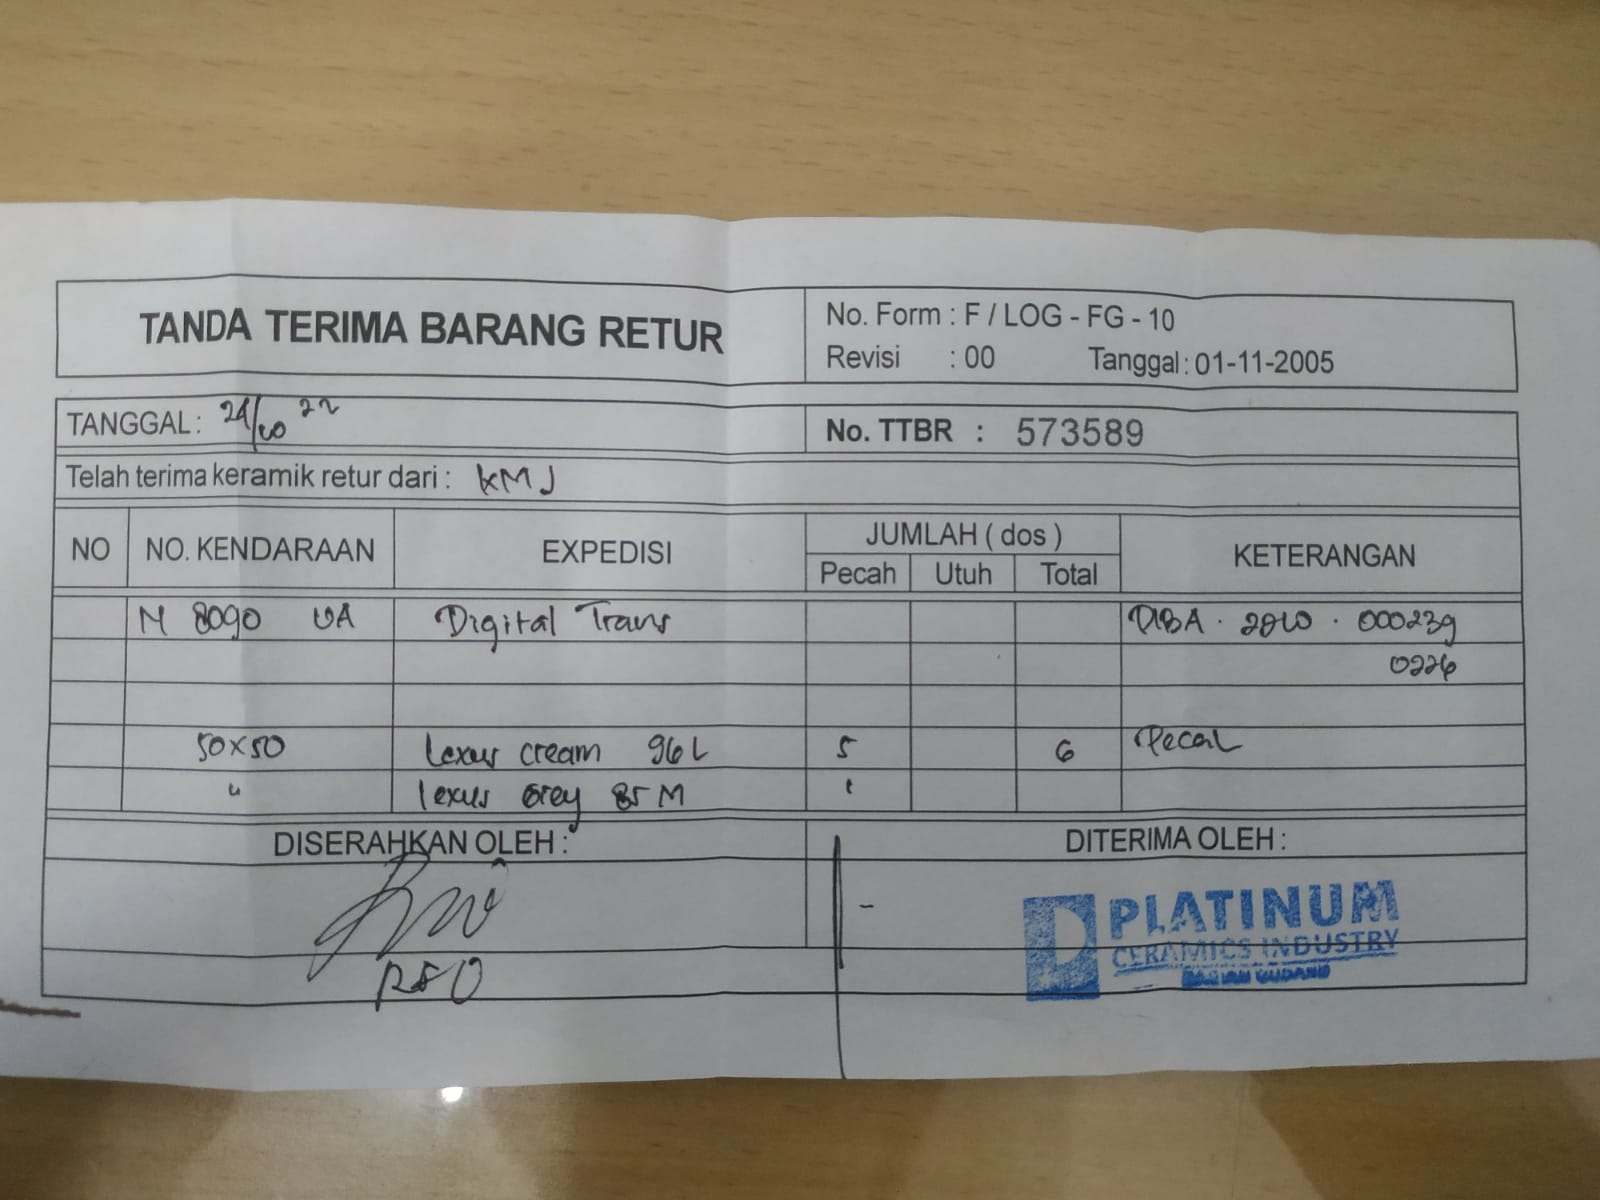 TANDA TERIMA BARANG RETUR
No. Form : F / LOG - FG - 10
Revisi : 00 Tanggal : 01-11-2005
TANGGAL : 24/10 22
No. TTBR : 573589
Telah terima keramik retur dari : KMJ
NO NO. KENDARAAN EXPEDISI JUMLAH ( dos ) KETERANGAN
Pecah Utuh Total
N 8090 UA Digital Trans DIBA . 2210 . 000239
0226
50x50 Lexus cream 96 L 5 6 Pecah
" Lexus Grey 85 M 1
DISERAHKAN OLEH : DITERIMA OLEH :
-
PLATINUM
CERAMICS INDUSTRY
BAGIAN GUDANG